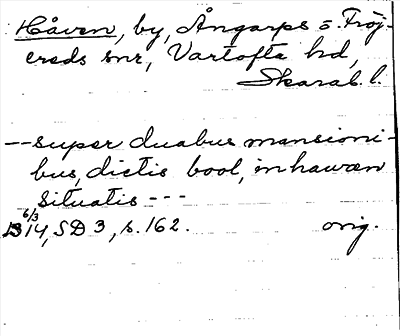 Håven, by, Ångarps o. Fröj-
ereds snr, Vartofta hd,
Skarab. l.
--super duabus mansioni-
bus, dictis bool, in hawæn
situatis ---
6/3
1314, SD 3, s. 162. orig.